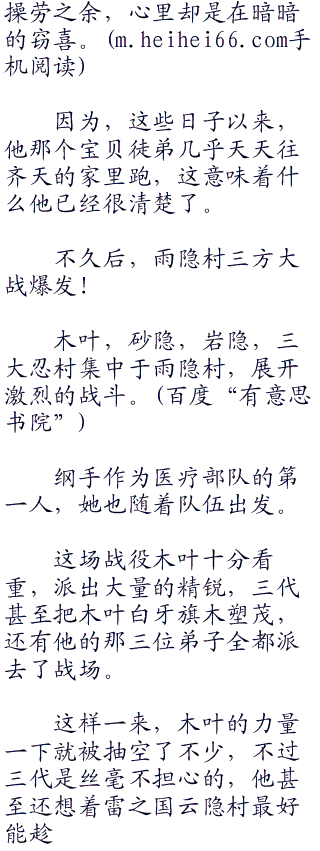 操劳之余，心里却是在暗暗
的窃喜。(m.heihei66.com手
机阅读)
因为，这些日子以来，
他那个宝贝徒弟几乎天天往
齐天的家里跑，这意味着什
么他已经很清楚了。
不久后，雨隐村三方大
战爆发！
木叶，砂隐，岩隐，三
大忍村集中于雨隐村，展开
激烈的战斗。(百度“有意思
书院”)
纲手作为医疗部队的第
一人，她也随着队伍出发。
这场战役木叶十分看
重，派出大量的精锐，三代
甚至把木叶白牙旗木塑茂，
还有他的那三位弟子全都派
去了战场。
这样一来，木叶的力量
一下就被抽空了不少，不过
三代是丝毫不担心的，他甚
至还想着雷之国云隐村最好
能趁